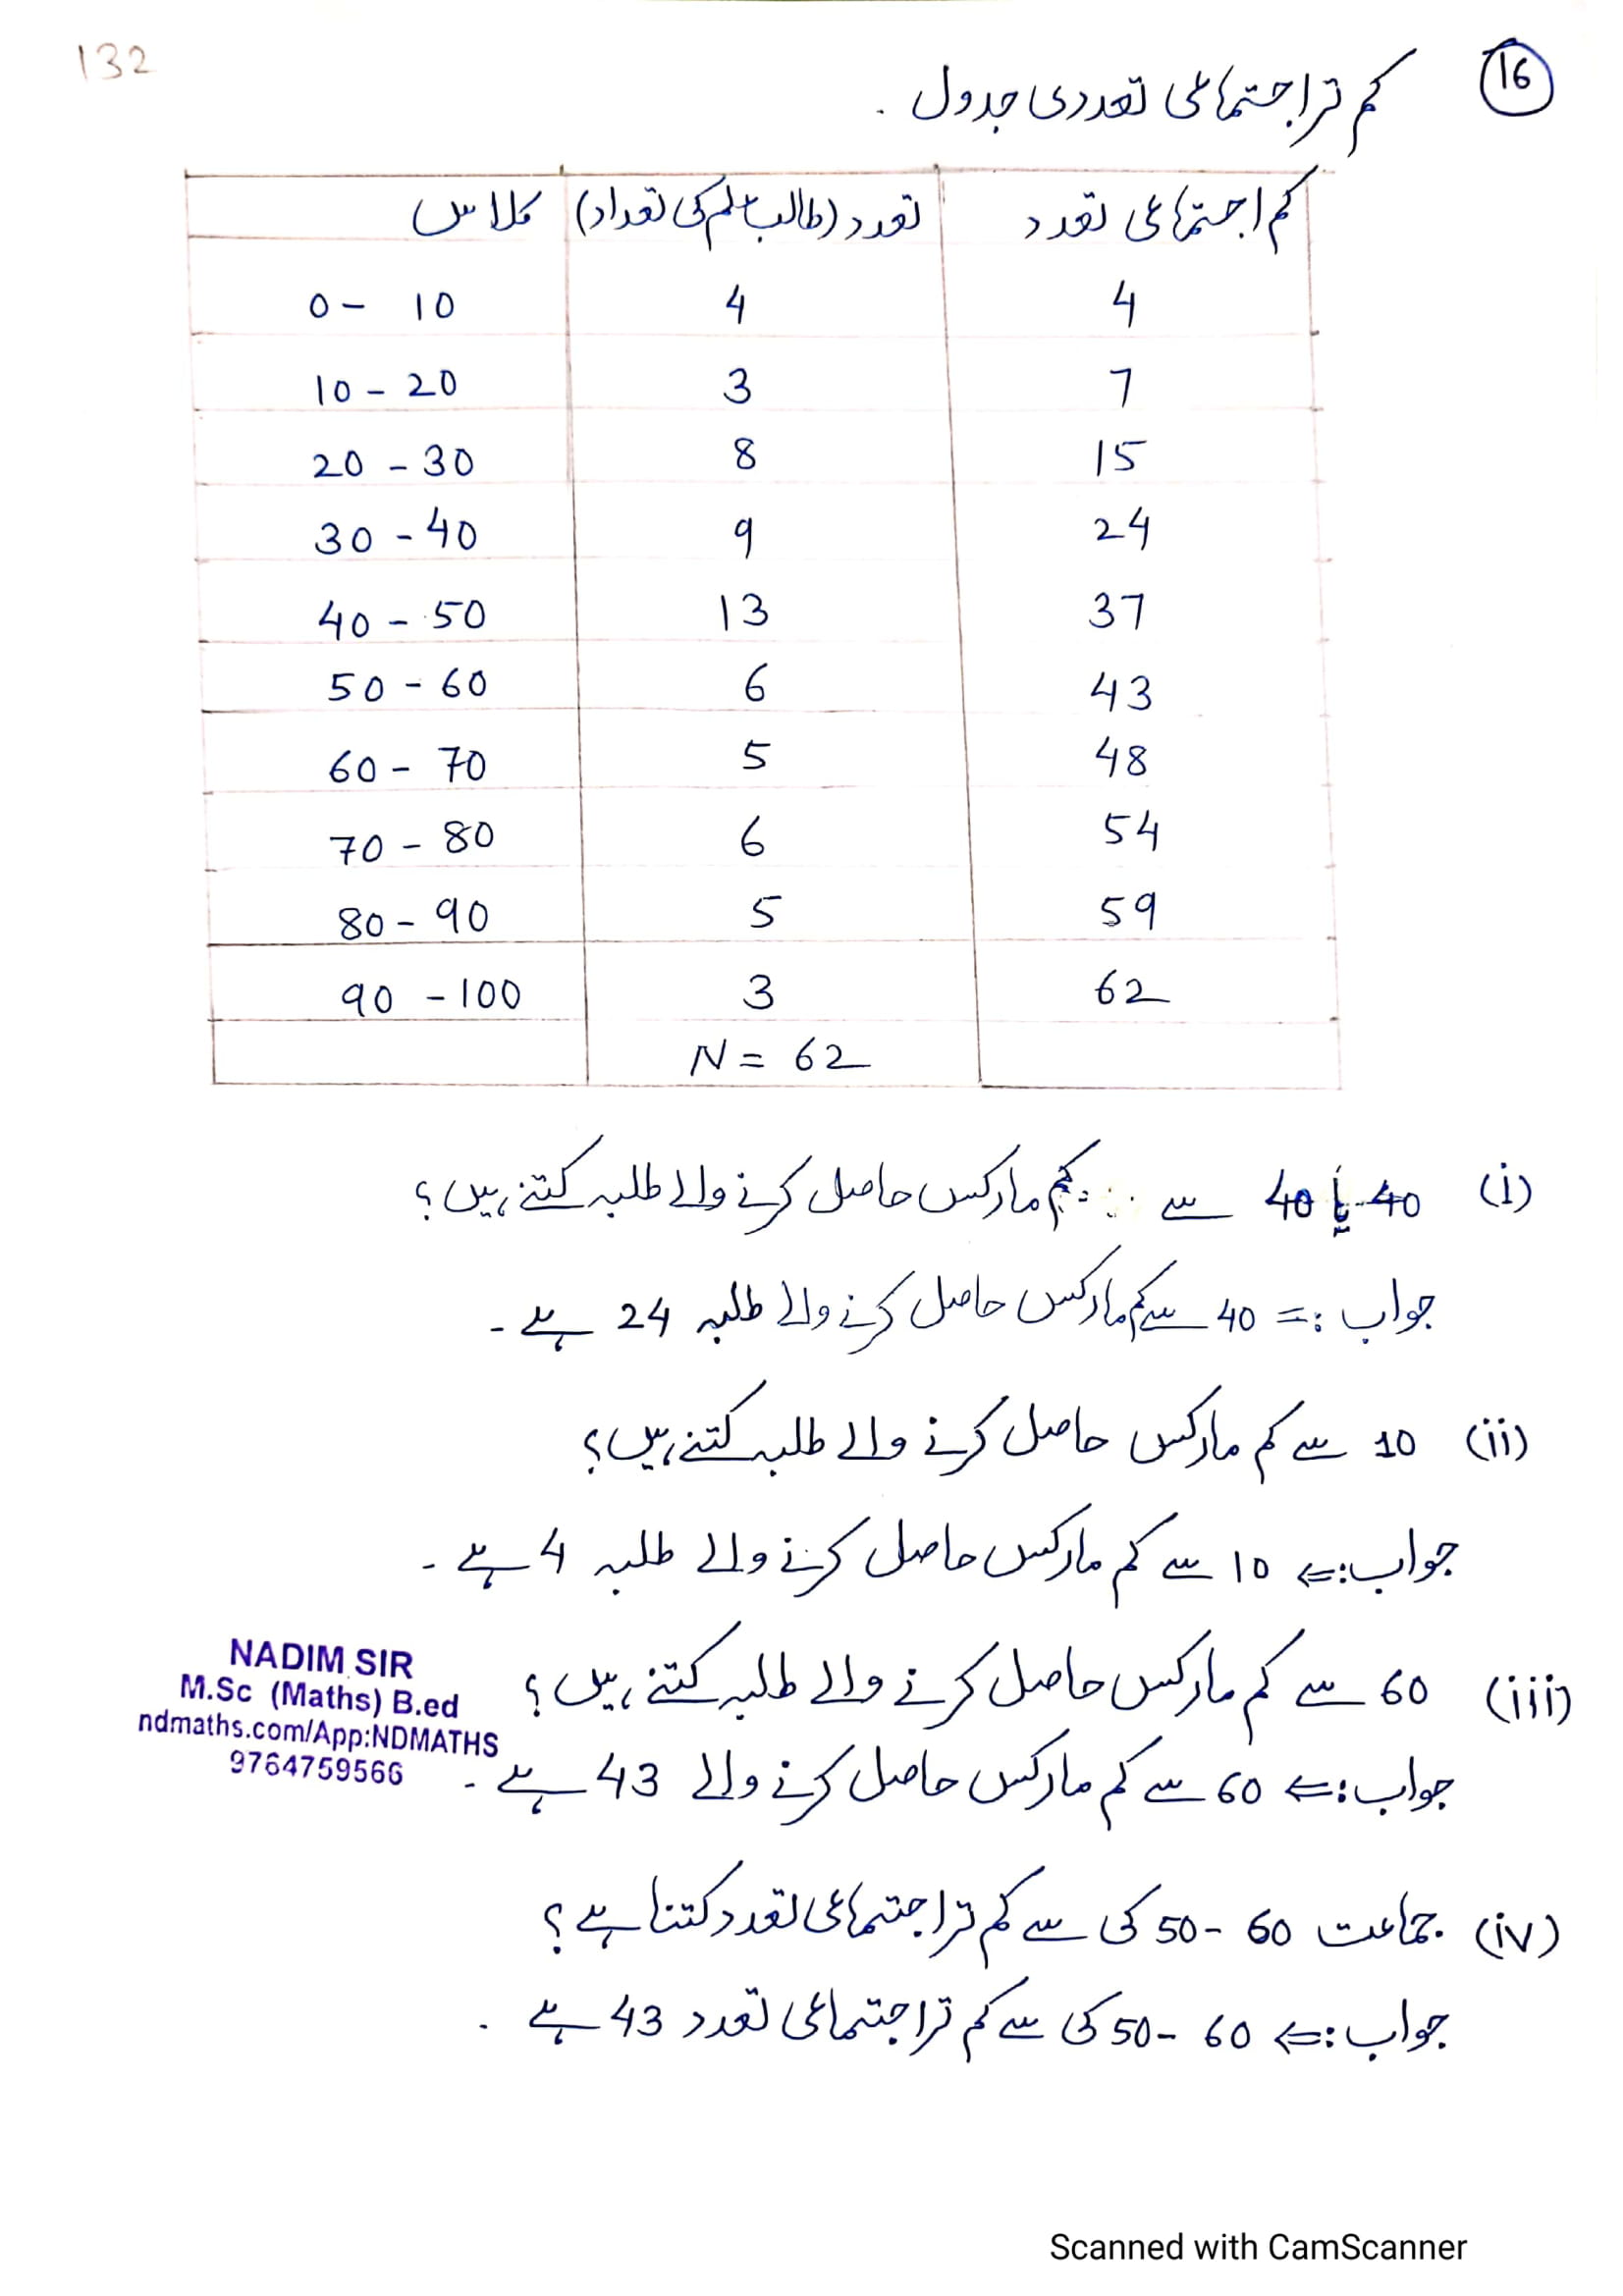 132
16
کم تر اجتماعی تعددی جدول .
کلاس تعدد (طالب علم کی تعداد) کم اجتماعی تعدد
0 - 10 4 4
10 - 20 3 7
20 - 30 8 15
30 - 40 9 24
40 - 50 13 37
50 - 60 6 43
60 - 70 5 48
70 - 80 6 54
80 - 90 5 59
90 - 100 3 62
N = 62
(i) 40 یا 40 سے کم مارکس حاصل کرنے والے طلبہ کتنے ہیں؟
جواب := 40 سے کم مارکس حاصل کرنے والے طلبہ 24 ہے -
(ii) 10 سے کم مارکس حاصل کرنے والے طلبہ کتنے ہیں؟
جواب :⇐ 10 سے کم مارکس حاصل کرنے والے طلبہ 4 ہے -
(iii) 60 سے کم مارکس حاصل کرنے والے طلبہ کتنے ہیں؟
جواب :⇐ 60 سے کم مارکس حاصل کرنے والے 43 ہے -
NADIM SIR
M.Sc (Maths) B.ed
ndmaths.com/App:NDMATHS
9764759566
(iv) جماعت 60 - 50 کی سے کم تر اجتماعی تعدد کتنا ہے؟
جواب :⇐ 60 - 50 کی سے کم تر اجتماعی تعدد 43 ہے .
Scanned with CamScanner